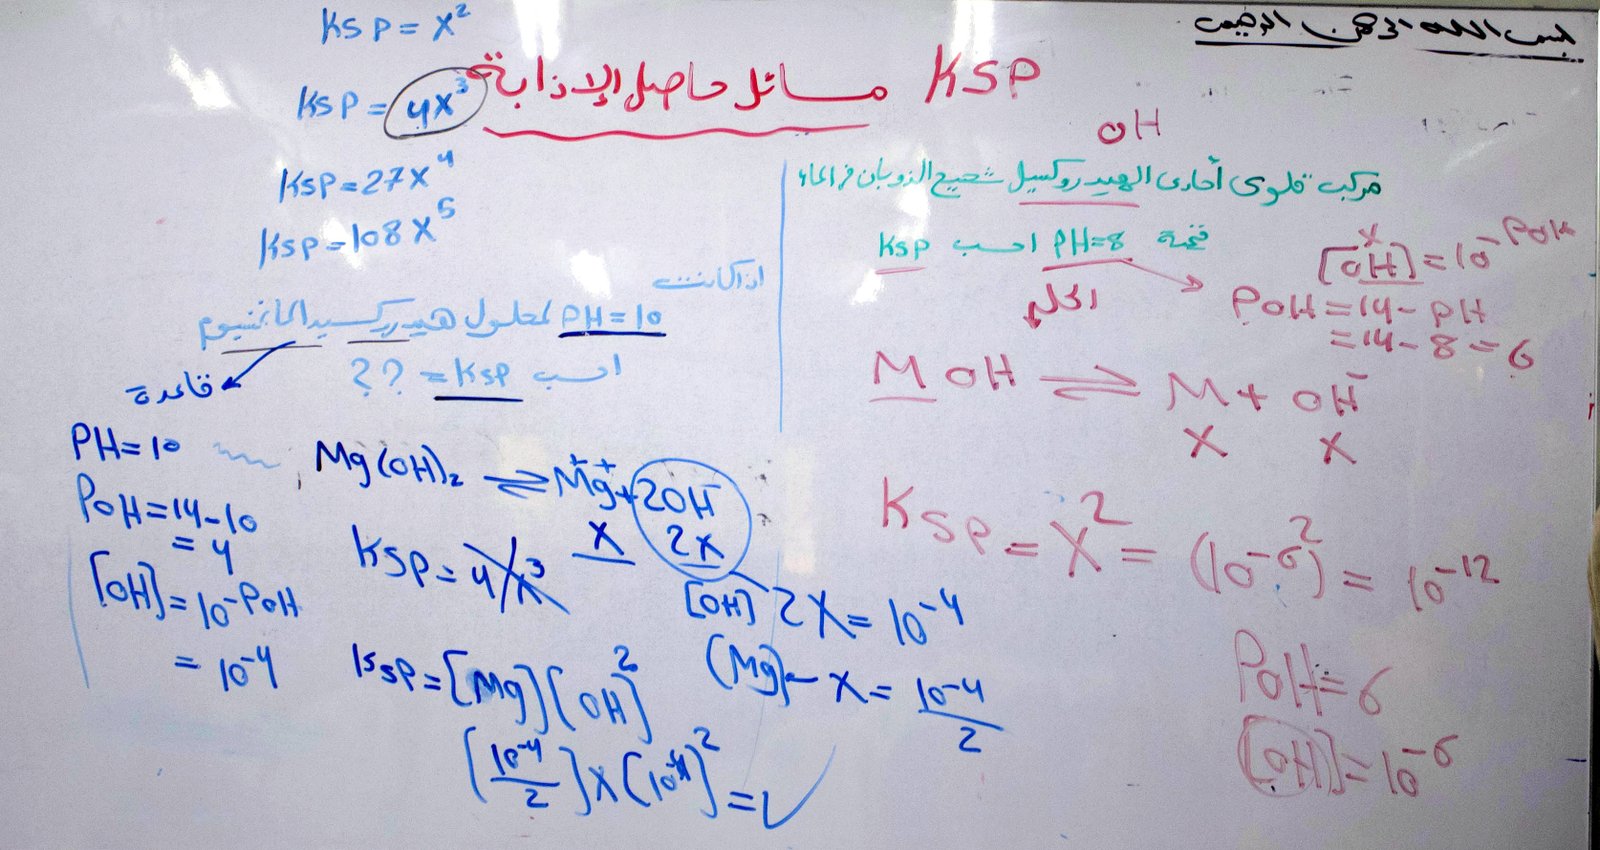 بسم الله الرحمن الرحيم
مسائل حاصل الإذابة KSP
OH
مركب قلوى أحادى الهيدروكسيل شحيح الذوبان فى الماء
قيمة PH=8 احسب KSP
الحل
x
[OH]=10^-POH
POH=14-PH
=14-8=6
MOH ⇌ M + OH^-
X X
KSP = X^2 = (10^-6)^2 = 10^-12
POH=6
[OH]=10^-6
KSP=X^2
KSP=4X^3
KSP=27X^4
KSP=108X^5
اذا كانت
PH=10 لمحلول هيدروكسيد الماغنسيوم
احسب KSP=??
قاعدة
PH=10
POH=14-10
=4
[OH]=10^-POH
=10^-4
Mg(OH)₂ ⇌ Mg^++ + 2OH^-
X 2X
KSP=4X^3
[OH] 2X=10^-4
(Mg) X=10^-4/2
KSP=[Mg][OH]^2
[10^-4/2]X(10^-4)^2=✓